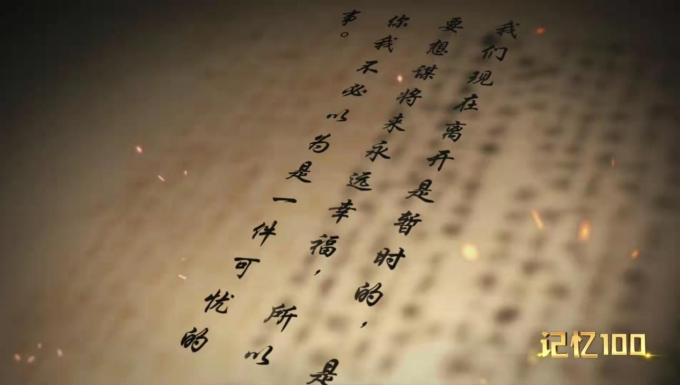 我们现在离开是暂时的，是
要想谋将来永远幸福，所以
你我不必以为是一件可忧的
事。
记忆100